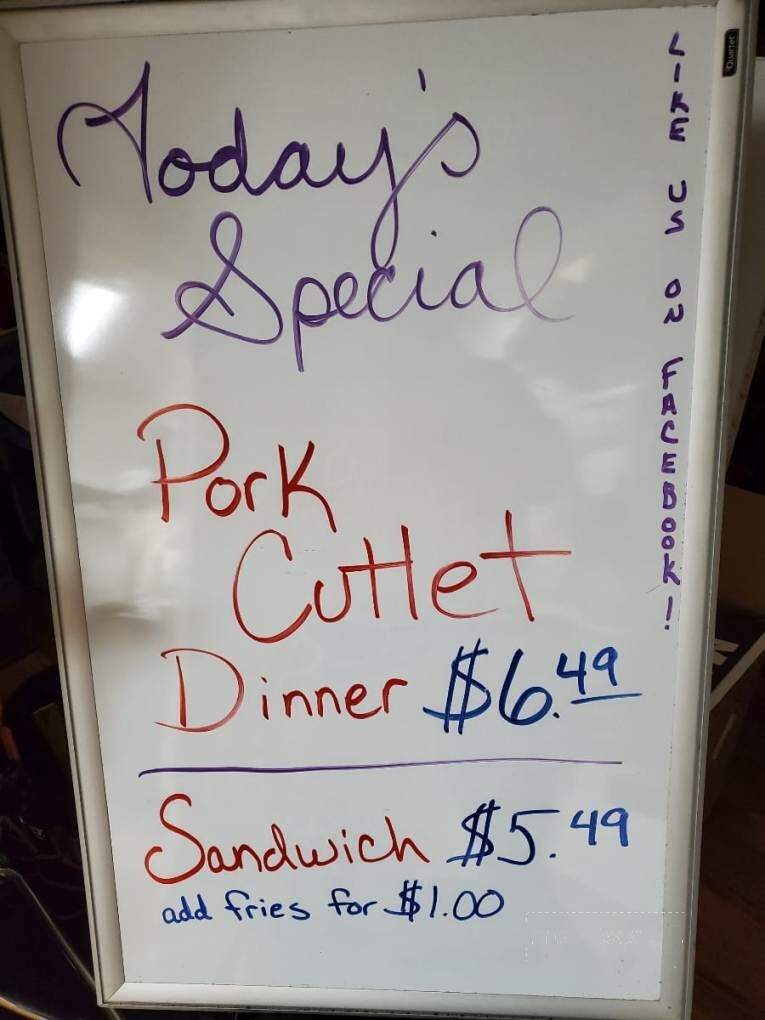 Today's
Special
Pork
Cutlet
Dinner $6.49
Sandwich $5.49
add fries for $1.00
LIKE US ON FACEBOOK!
Quartet